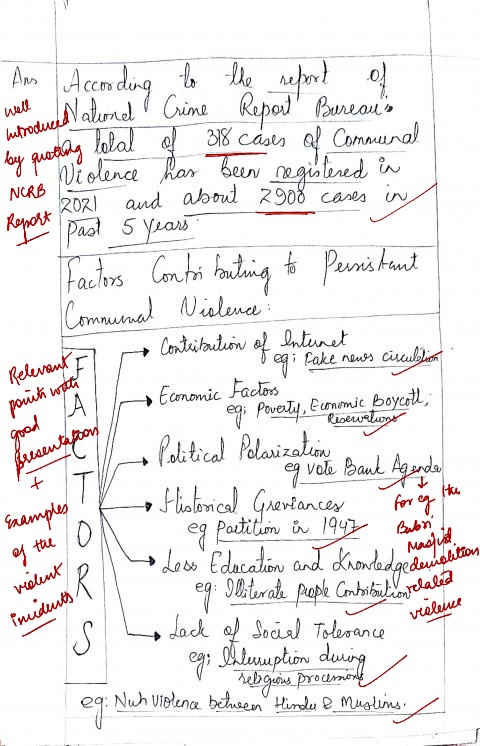 Ans According to the report of
National Crime Report Bureau's
a total of 378 cases of Communal
Violence has been registered in
2021 and about 2900 cases in
Past 5 Years.
well
introduced
by quoting
NCRB
Report
Factors Contributing to Persistant
Communal Violence:
FACTORS
Contribution of Internet
eg: Fake news circulation
Economic Factors
eg: Poverty, Economic Boycott,
Reservations
Political Polarization
eg Vote Bank Agenda
Historical Greviances
eg Partition in 1947
Less Education and Knowledge
eg: Illiterate people Contribution
Lack of Social Tolerance
eg: Interruption during
religious processions
eg: Nuh Violence between Hindu & Muslims.
Relevant
points with
good
presentation
+
Examples
of the
violent
incidents
for eg the
Babri
Masjid
demolition
related
violence